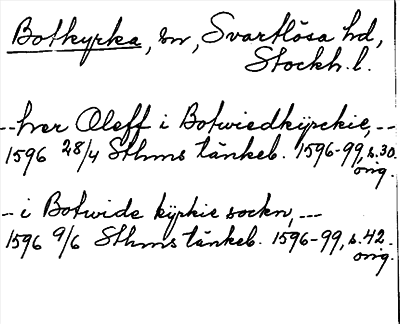 Botkyrka, sn, Svartlösa hd,
Stockh. l.
--her Oleff i Botwiedkijrckie, --
1596 28/4 Sthms tänkeb. 1596-99, s. 30.
orig.
- i Botwide kijrkie sockn, ---
1596 9/6 Sthms tänkeb. 1596-99, s. 42.
orig.